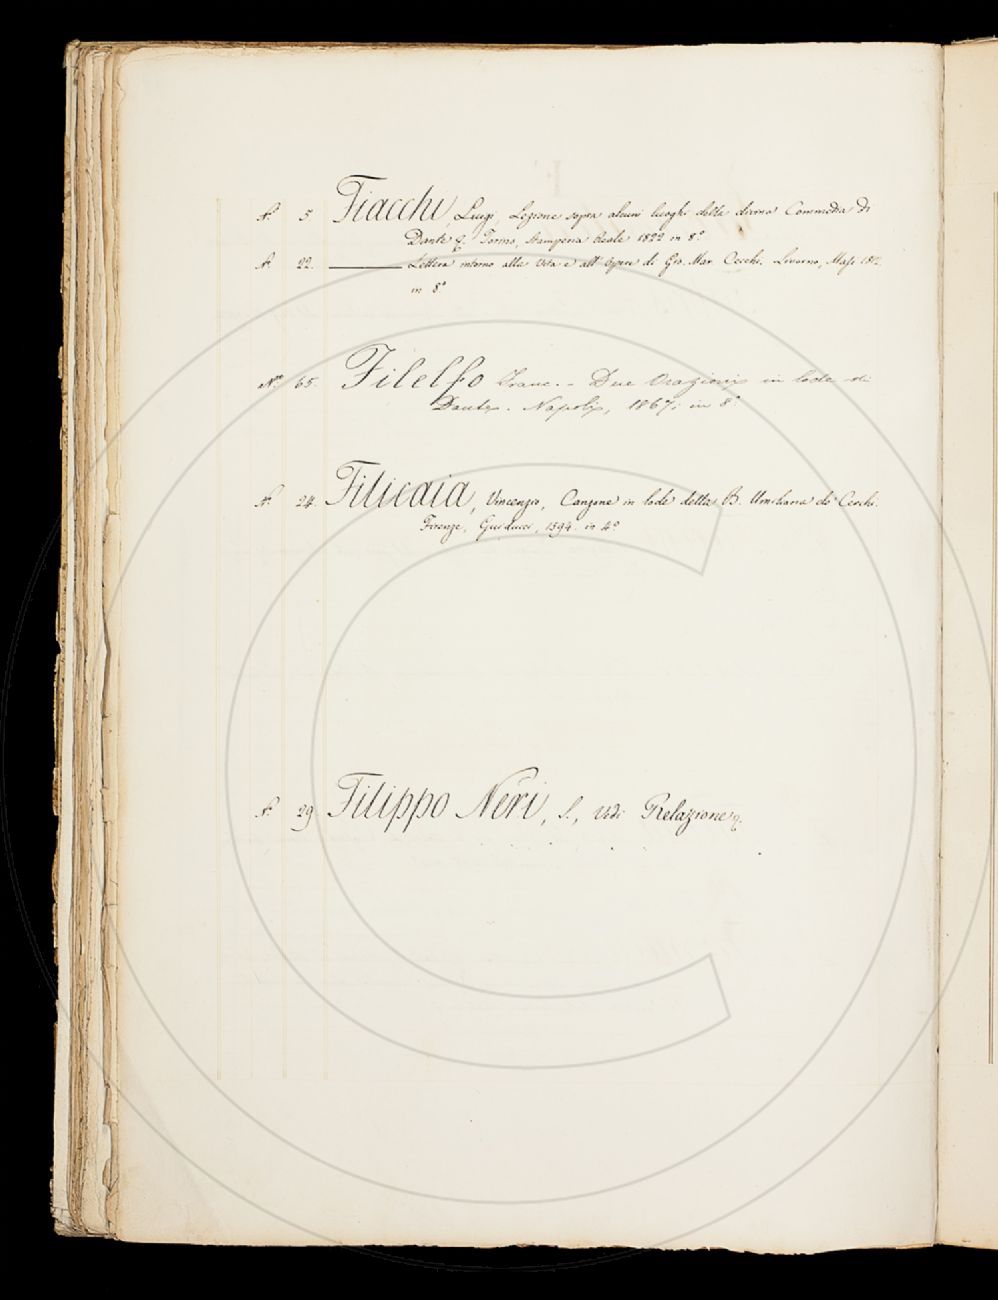 N.º 5. Fiacchi, Luigi, Lezione sopra alcuni luoghi della divina Commedia di
Dante &. Torino, Stamperia Reale 1822 in 8.º
22. ——— Lettera intorno alla vita e all' opere di Gio. Mar. Cecchi. Livorno, Masi 18
in 8.º
N.º 65. Filelfo Franc. - Due Orazioni in lode di
Dante. Napoli, 1867; in 8.º
24. Filicaia, Vincenzo, Canzone in lode della B. Umiliana de' Cerchi.
Firenze, Guiducci, 1594. in 4.º
29 Filippo Neri, S., Vedi Relazione &.